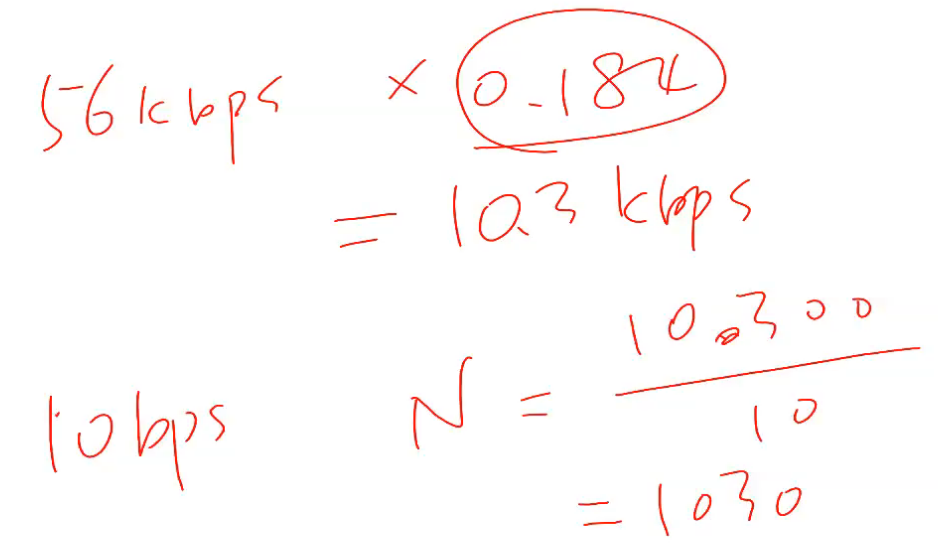 56 kbps × 0.184
= 10.3 kbps
10 bps N = 10.300 / 10
= 1030